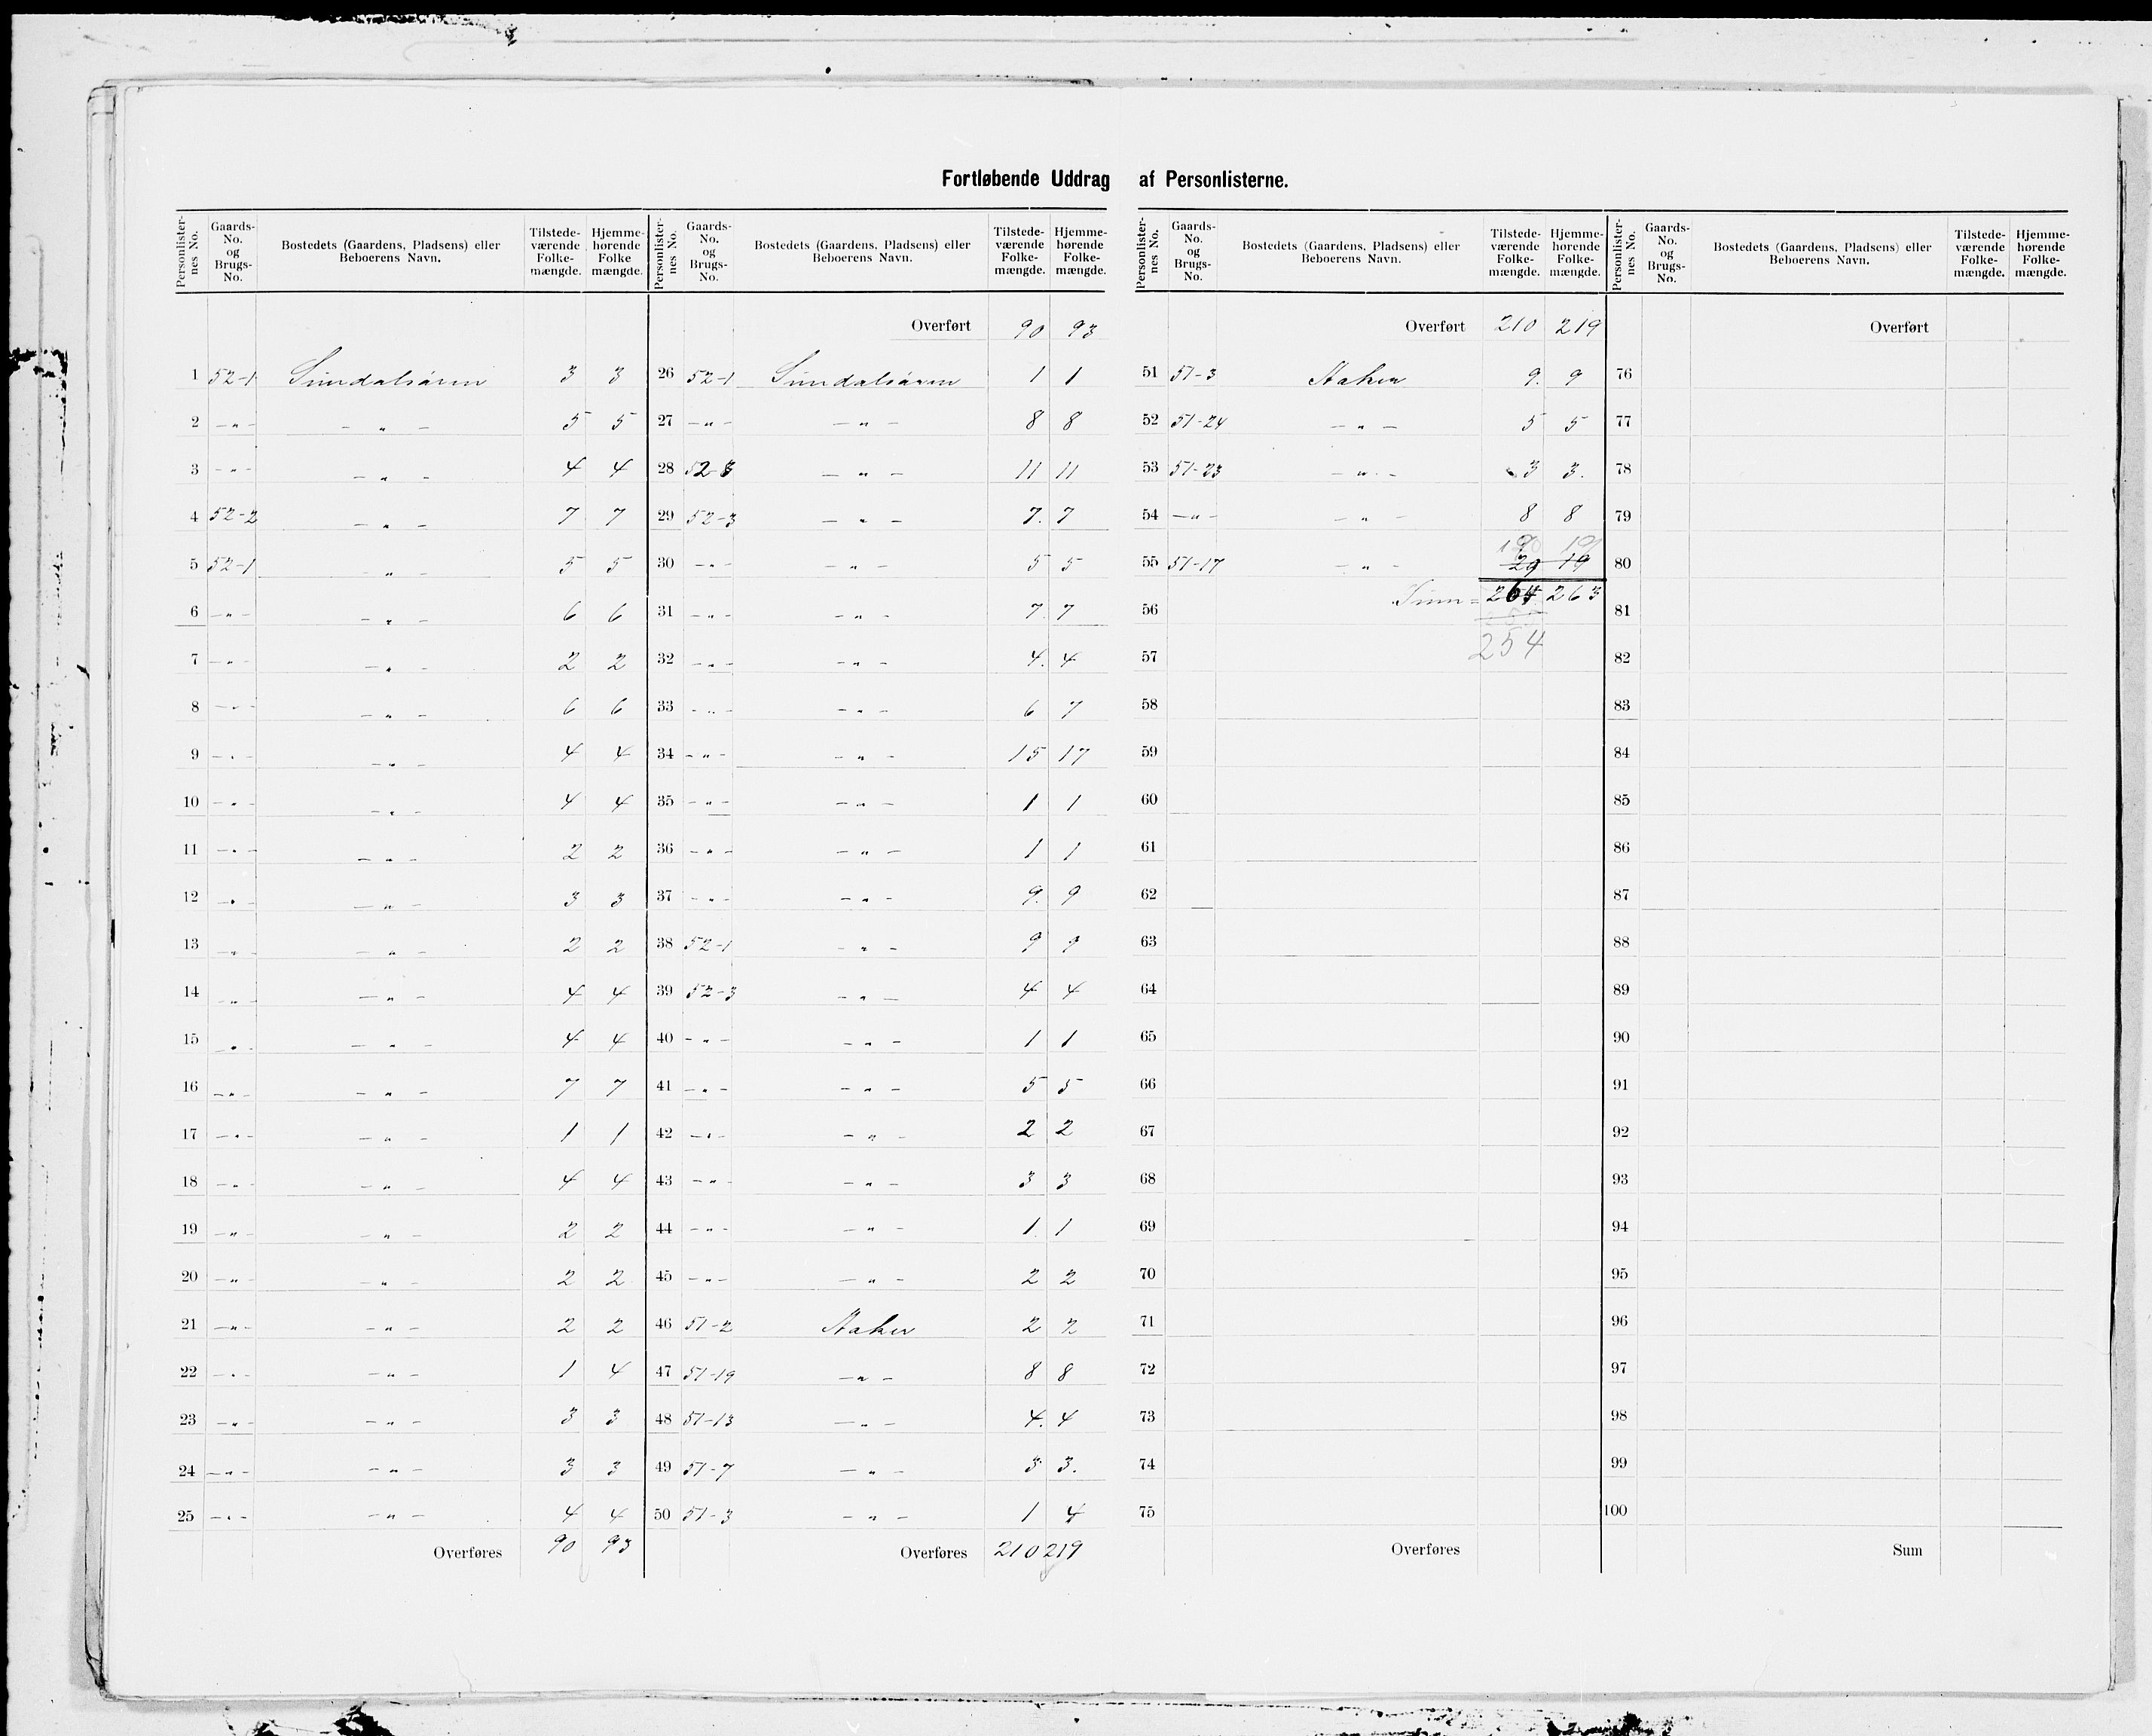 Fortløbende Uddrag af Personlisterne.
Personlister-nes No. Gaards-No. og Brugs-No. Bostedets (Gaardens, Pladsens) eller Beboerens Navn. Tilstede-værende Folke-mængde. Hjemme-hørende Folke mængde.
Personlister-nes No. Gaards-No. og Brugs-No. Bostedets (Gaardens, Pladsens) eller Beboerens Navn. Tilstede-værende Folke-mængde. Hjemme-hørende Folke-mængde.
Personlister-nes No. Gaards-No. og Brugs-No. Bostedets (Gaardens, Pladsens) eller Beboerens Navn. Tilstede-værende Folke-mængde. Hjemme-hørende Folke-mængde.
Personlister-nes No. Gaards-No. og Brugs-No. Bostedets (Gaardens, Pladsens) eller Beboerens Navn. Tilstede-værende Folke-mængde. Hjemme-hørende Folke-mængde.
1 52-1 Sundalsøren 3 3
2 -"- -"- 5 5
3 -"- -"- 4 4
4 52-2 -"- 7 7
5 52-1 -"- 5 5
6 -"- -"- 6 6
7 -"- -"- 2 2
8 -"- -"- 6 6
9 -"- -"- 4 4
10 -"- -"- 4 4
11 -"- -"- 2 2
12 -"- -"- 3 3
13 -"- -"- 2 2
14 -"- -"- 4 4
15 -"- -"- 4 4
16 -"- -"- 7 7
17 -"- -"- 1 1
18 -"- -"- 4 4
19 -"- -"- 2 2
20 -"- -"- 2 2
21 -"- -"- 2 2
22 -"- -"- 1 4
23 -"- -"- 3 3
24 -"- -"- 3 3
25 -"- -"- 4 4
Overføres 90 93
Overført 90 93
26 52-1 Sundalsøren 1 1
27 -"- -"- 8 8
28 52-3 -"- 11 11
29 52-3 -"- 7. 7
30 -"- -"- 5 5
31 -"- -"- 7. 7
32 -"- -"- 4. 4
33 -"- -"- 6 7
34 -"- -"- 15 17
35 -"- -"- 1 1
36 -"- -"- 1 1
37 -"- -"- 9. 9
38 52-1 -"- 9 9
39 52-3 -"- 4 4
40 -"- -"- 1 1
41 -"- -"- 5 5
42 -"- -"- 2 2
43 -"- -"- 3 3
44 -"- -"- 1. 1
45 -"- -"- 2 2
46 51-2 Haken 2 2
47 51-19 -"- 8 8
48 51-13 -"- 4. 4
49 51-7 -"- 3 3.
50 51-3 -"- 1 4
Overføres 210 219
Overført 210 219
51 51-3 Haken 9. 9
52 51-24 -"- 5 5
53 51-23 -"- 3 3.
54 -"- -"- 8 8
55 51-17 -"- 29 19
56 Sum = 264 263
57 254
58
59
60
61
62
63
64
65
66
67
68
69
70
71
72
73
74
75
Overføres
Overført
76
77
78
79
80
81
82
83
84
85
86
87
88
89
90
91
92
93
94
95
96
97
98
99
100
Sum